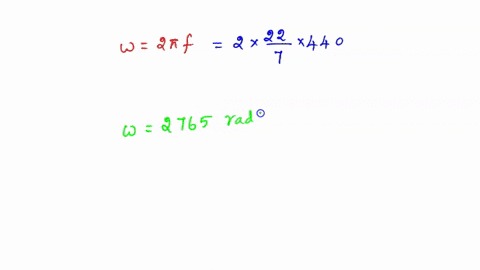 ω = 2πf = 2 × 22/7 × 440
ω = 2765 rad